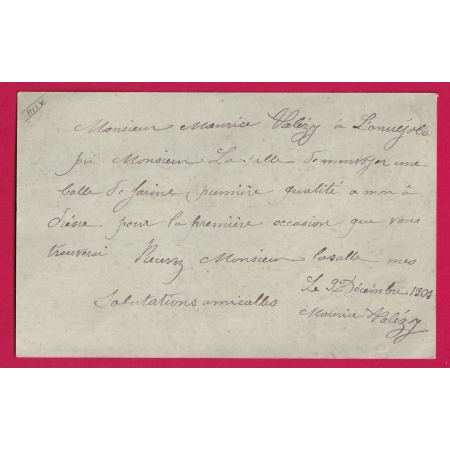 Monsieur Maurice Valézy à Lanuéjols
pri Monsieur La salle de m'envoyer une
balle de farine première qualité a mon a
diésse pour la première occasion que vous
trouverai Recevez Monsieur lasalle mes
Salutations amicalles
Le 9 Décembre 1901
Maurice Valézy